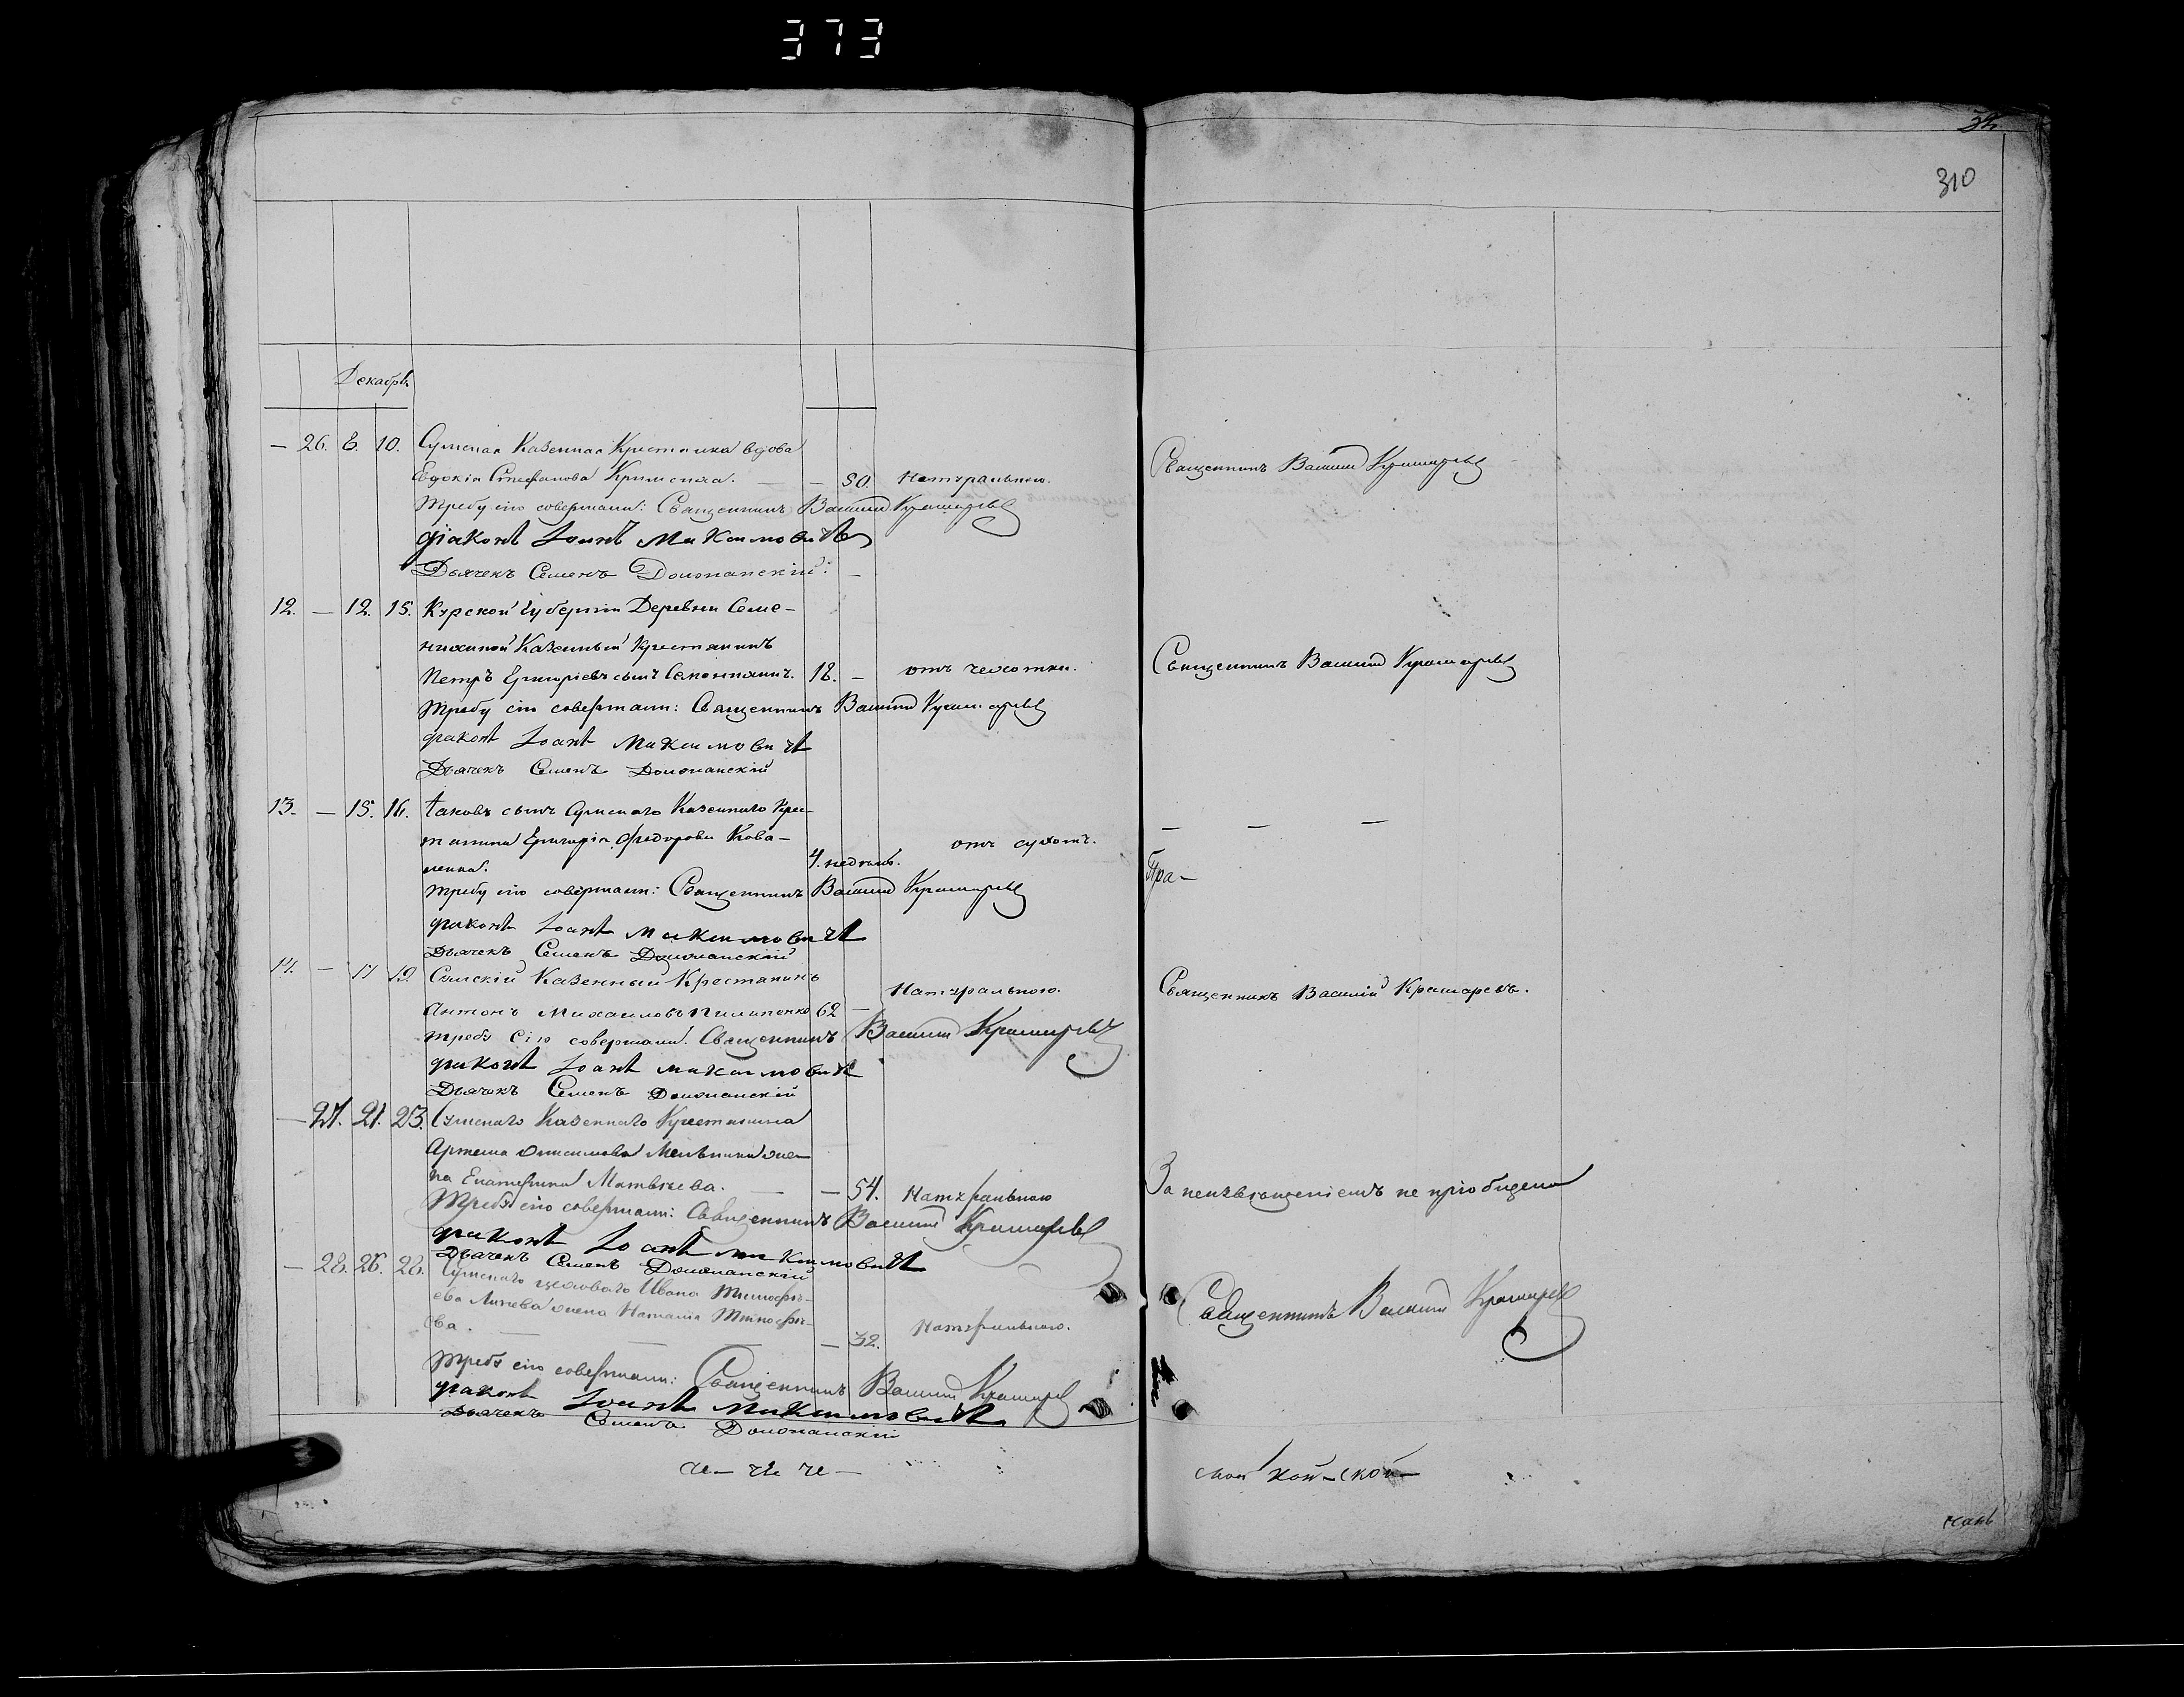 373
310
Декабрь
— 26. 8. 10. Сумская Казенная Крестянка вдова
Евдокія Стефанова — — 80. Натуральною. Священникъ Василій Крамаревъ
Требу сію совершали: Священникъ Василій Крамаревъ
Діаконъ Іоаннъ Максимовичъ
Дьячекъ Семенъ Должанскій. —
12. — 12. 15. Курской Губерніи Деревни Семе-
нихиной Казенный Крестянинъ
Петръ Григоріевъ сынъ 18. — отъ чахотки. Священникъ Василій Крамаревъ
Требу сію совершали: Священникъ Василій Крамаревъ
Діаконъ Іоаннъ Максимовичъ
Дьячекъ Семенъ Должанскій
13. — 15. 16. Іаковъ сынъ Сумскаго Казеннаго Крес-
тянина Григорія Федорова Кова-
ленка. 4. недѣль. отъ сухотъ. — — —
Требу сію совершали: Священникъ Василій Крамаревъ
Пра-
Діаконъ Іоаннъ Максимовичъ
Дьячекъ Семенъ Должанскій
14. — 17 19. Сумскій Казенный Крестянинъ
Антонъ Михаиловъ Пилипенко 62 — Натуральною. Священникъ Василій Крамаревъ.
Требу сію совершали: Священникъ Василій Крамаревъ
Діаконъ Іоаннъ Максимовичъ
Дьячекъ Семенъ Должанскій
— 27. 21. 23. Сумскаго Казеннаго Крестянина
Артема Онисимова Мельника же-
на Екатерина Матвѣева. — — 54. Натуральною За неизвѣщеніемъ не пріобщена
Требу сію совершали: Священникъ Василій Крамаревъ
Діаконъ Іоаннъ Максимовичъ
Дьячекъ Семенъ Должанскій
— 28. 26. 28. Сумскаго Ивана Тимофѣ-
ева жена Наталія Тимофѣе-
ва. — — — 32. Натуральною. Священникъ Василій Крамаревъ
Требу сію совершали: Священникъ Василій Крамаревъ
Діаконъ Іоаннъ Максимовичъ
Дьячекъ Семенъ Должанскій
ской —